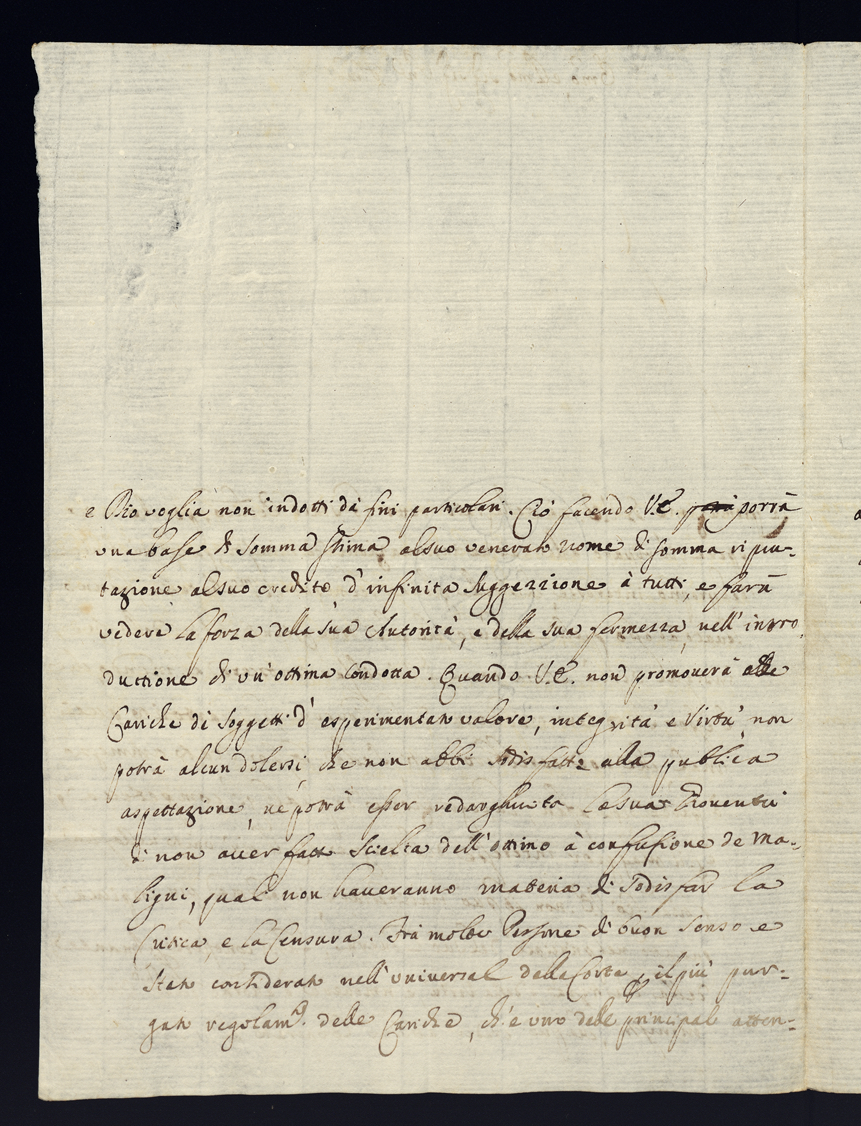 e Dio voglia non indotti da fini particolari. Ciò facendo V.E. porrà
una base di somma stima al suo venerato nome di somma ripu-
tazione al suo credito d'infinita suggezzione à tutti, e farà
vedere la forza della sua Autorità, e della sua fermezza nell'intro
duttione di un'ottima condotta. Quando V.E. non promoverà alle
Cariche di soggetti d'esperimentato valore, integrità e Virtù non
potrà alcun dolersi che non abbi sodisfatto alla publica
aspettazione, nè potrà esser redarghuita la sua Gioventù
di non aver fatto scielta dell'ottimo à confusione de Ma-
ligni, quali non haveranno materia di sodisfar la
Critica, e la Censura. Frà molte Persone di buon senso e
stato considerato nell'universal della Corte, il più pur-
gato regolam.to delle Cariche, ch'è uno delle principal atten-